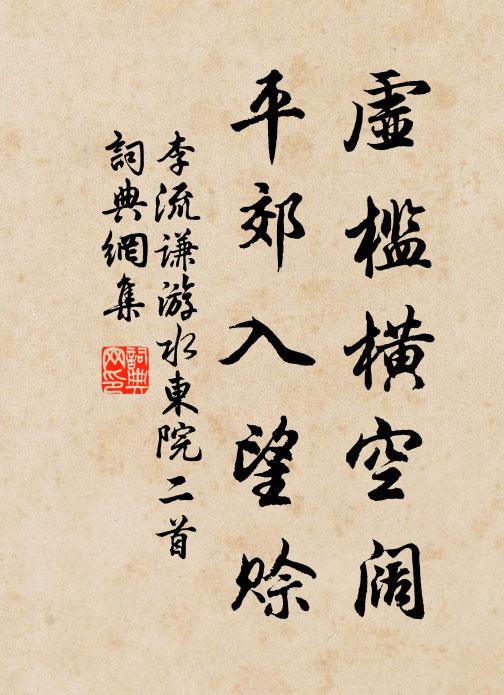 虛檻橫空闊
平郊入望賒
李流謙游水東院二首
詞典網集
詞典网印